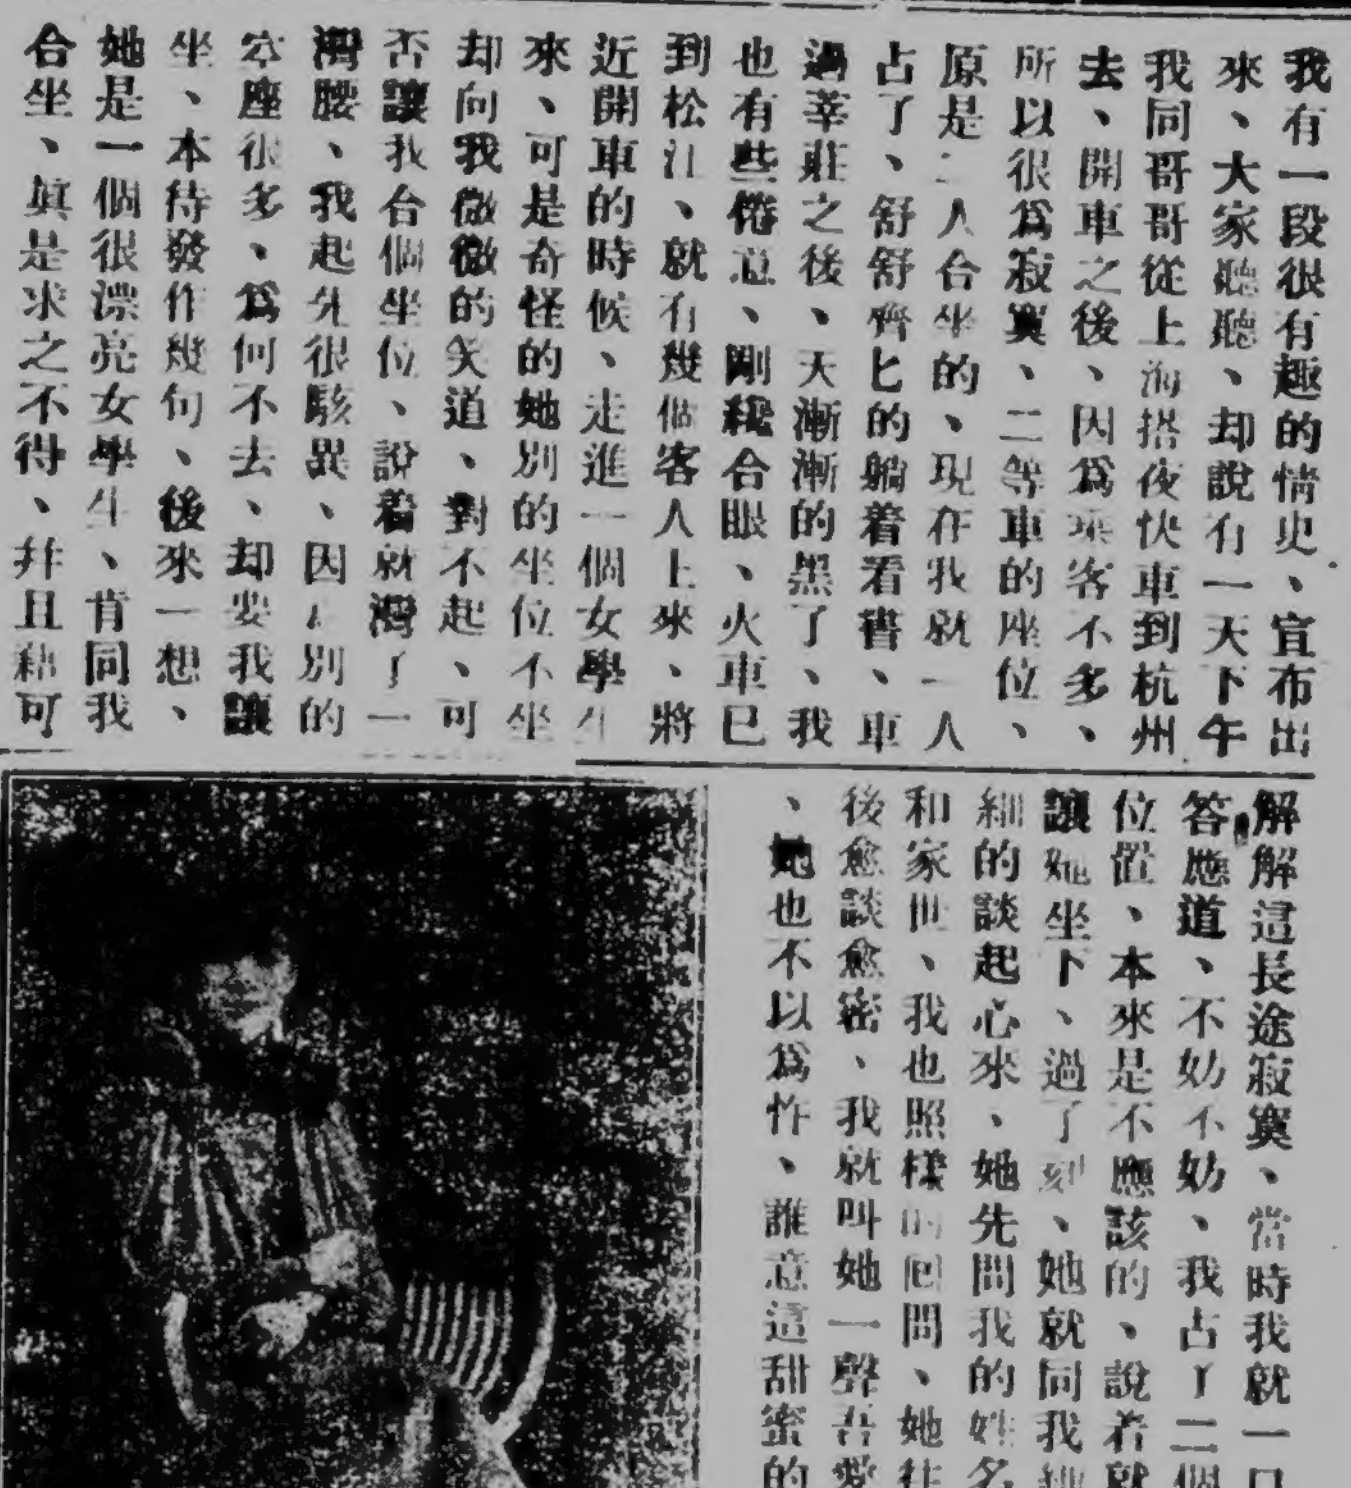 我有一段很有趣的情史、宣布出
來、大家聽聽、却說有一天下午
我同哥哥從上海搭夜快車到杭州
去、開車之後、因爲乘客不多、
所以很爲寂寞、二等車的座位、
原是二人合坐的、現在我就一人
占了、舒舒齊匕的躺着看書、車
過莘莊之後、天漸漸的黑了、我
也有些倦意、剛纔合眼、火車已
到松江、就有幾個客人上來、將
近開車的時候、走進一個女學生
來、可是奇怪的她別的坐位不坐
却向我微微的笑道、對不起、可
否讓我合個坐位、說着就灣了一
灣腰、我起先很駭異、因爲別的
空座很多、爲何不去、却要我讓
坐、本待發作幾句、後來一想、
她是一個很漂亮女學生、肯同我
合坐、眞是求之不得、幷且藉可
解解這長途寂寞、當時我就一口
答應道、不妨不妨、我占了二個
位置、本來是不應該的、說着就
讓她坐下、過了刻、她就同我細
細的談起心來、她先問我的姓名
和家世、我也照樣的回問、她往
後愈談愈密、我就叫她一聲吾愛
、她也不以爲怍、誰意這甜蜜的